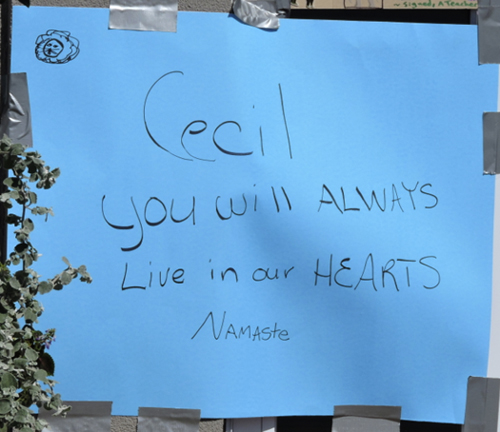 ~ signed, A Teacher
Cecil
you will ALWAYS
Live in our HEARTS
NAMASte